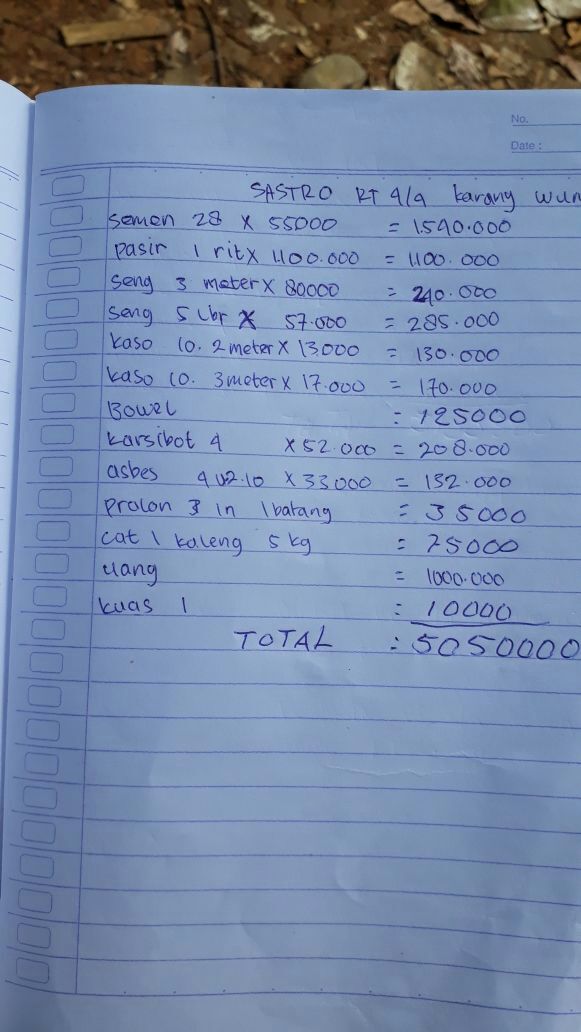 No.
Date :
SASTRO RT 4/4 karang wun
semen 28 x 55000 = 1.540.000
pasir 1 rit x 1100.000 = 1100.000
seng 3 meter x 80000 = 240.000
seng 5 lbr x 57.000 = 285.000
kaso 10. 2 meter x 13000 = 130.000
kaso 10. 3 meter x 17.000 = 170.000
Bowel = 125000
karsibot 4 x 52.000 = 208.000
asbes 4 x 33000 = 132.000
prolon 3 in 1 batang = 35000
cat 1 kaleng 5 kg = 75000
uang = 1000.000
kuas 1 = 10000
TOTAL = 5050000